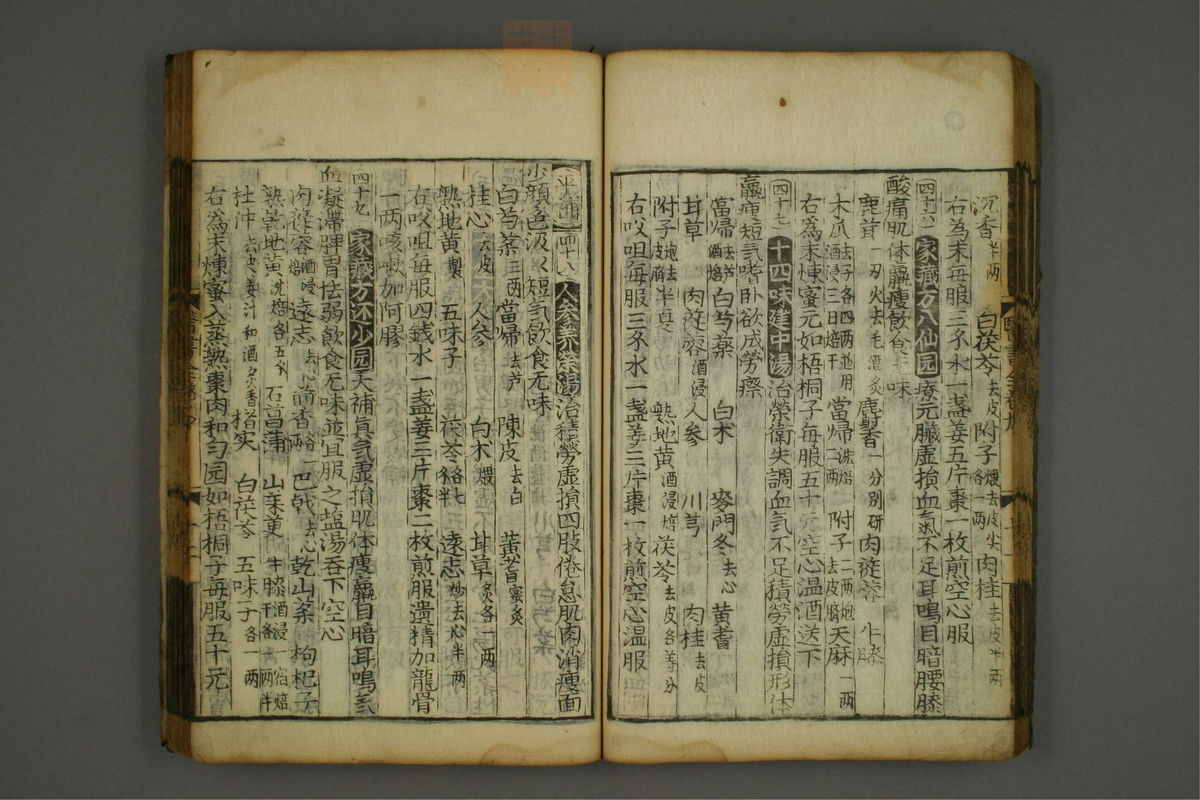 沉香半两 白茯苓去皮 附子煨去皮尖各一两 肉桂去皮半两
右為末每服三禾水一盞姜五片棗一枚煎空心服
四十六 家藏方八仙园 療元臓虛損血氣不足耳鳴目暗腰膝
酸痛肌体羸瘦飲食无味
鹿茸一刄火去毛酒炙 麝香一分别研 肉蓯蓉 牛膝
木爪去子各四两並用酒浸三日焙干 當帰洗焙二两 附子二两炮去皮臍 天麻一两
右為末煉蜜元如梧桐子每服五十元空心温酒送下
四十七 十四味建中湯 治榮衛失調血氣不足積勞虛損形体
羸瘦短氣嗜卧欲成勞瘵
當帰去芦酒焙 白芍薬 白术 麥門冬去心 黄耆
甘草 肉蓯蓉酒浸 人参 川芎 肉桂去皮
附子炮去皮臍 半夏 熟地黄酒浸焙 茯苓去皮各等分
右㕮咀每服三禾水一盞姜三片棗一枚煎空心温服
四十八 人参养榮湯 治積勞虛損四肢倦怠肌肉消瘦面
少顔色汲々短氣飲食无味
白芍薬三两 當帰去芦 陳皮去白 黄耆蜜炙
桂心去皮 人参 白术煨 甘草炙各一两
熟地黄製 五味子 茯苓各七錢半 遠志炒去心半两
右㕮咀每服四錢水一盞姜三片棗二枚煎服遺精加龍骨
一两咳嗽加阿膠
四十九 家藏方还少园 大補真氣虛損肌体瘦羸目暗耳鳴氣
血凝滞脾胃怯弱飲食无味並宜服之塩湯吞下空心
肉蓯蓉酒浸焙 遠志去心 茴香 巴戟去心 乾山薬 枸杞子
熟乾地黄洗焙各五禾 石菖蒲 山茱萸 牛膝酒浸焙干各一两半
杜仲去皮姜汁和酒炙香 楮实 白茯苓 五味子各一两
右為末煉蜜入蒸熟棗肉和匀园如梧桐子每服五十元